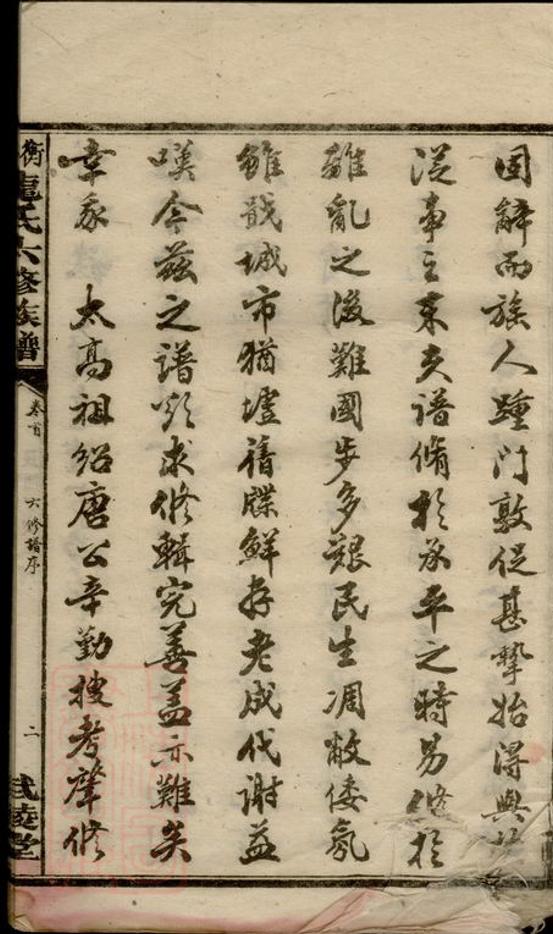 固辭而族人踵門敦促甚摯始得與
從事之來夫譜脩於承平之時易脩於
離亂之後難國步多艱民生凋敝倭氛
雖戢城市猶墟舊牒鮮存老成代謝益
嘆今茲之譜欲求修輯完善蓋亦難矣
幸我 太高祖紹唐公辛勤搜考肇修
衡龍氏六修族譜
卷首
六修譜序
二
武陵堂